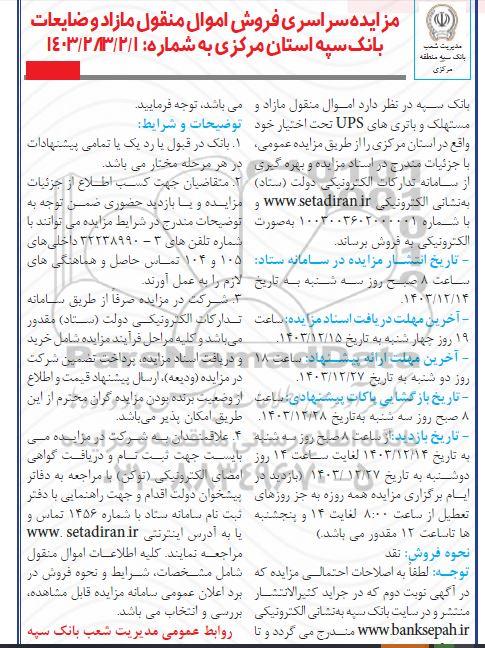 مزایده سراسری فروش اموال منقول مازاد و ضایعات
بانک سپه استان مرکزی به شماره: ۱۴۰۳/۲/۱۳/۲/۱
مدیریت شعب
بانک سپه منطقه
مرکزی
بانک سـپه در نظر دارد امـوال منقول مازاد و
مستهلک و باتری های UPS تحت اختیار خود
واقع در استان مرکزی را از طریق مزایده عمومی،
با جزئیات مندرج در اسناد مزایده و بهره گیری
از سـامانه تدارکات الکترونیکی دولت (ستاد)
به‌نشانی الکترونیکی www.setadiran.ir و
با شـماره ۱۰۰۳۰۰۳۶۰۲۰۰۰۰۰۱ به‌صورت
الکترونیکی به فروش برساند.
- تاریخ انتشـار مزایده در سـامانه ستاد:
ساعت ۸ صبـح روز سه شنبه بـه تاریخ
۱۴۰۳/۱۲/۱۴.
- آخرین مهلت دریافت اسناد مزایده: ساعت
۱۹ روز چهار شنبه به تاریخ ۱۴۰۳/۱۲/۱۵.
- آخرین مهلت ارائه پیشـنهاد: ساعت ۱۸
روز دو شنبه به تاریخ ۱۴۰۳/۱۲/۲۷.
- تاریخ بازگشایی پاکات پیشنهادی: ساعت
۸ صبح روز سه شنبه به‌تاریخ ۱۴۰۳/۱۲/۲۸.
- تاریخ بازدید: از ساعت ۸ صبح روز سه شنبه
به تاریخ ۱۴۰۳/۱۲/۱۴ لغایت سـاعت ۱۴ روز
دوشـنبه به تاریخ ۱۴۰۳/۱۲/۲۷ (بازدید در
ایـام برگزاری مزایده همه روزه به جز روزهای
تعطیل از ساعت ۸:۰۰ لغایت ۱۴ و پنجشنبه
ها تاساعت ۱۲ مقدور می باشد.)
نحوه فروش: نقد
توجـه: لطفاً به اصلاحات احتمالـی مزایده که
در آگهی نوبت دوم که در جراید کثیرالانتشـار
منتشر و در سایت بانک سپه به‌نشانی الکترونیکی
www.banksepah.ir منـدرج می گردد و تا
می باشد، توجه فرمایید.
توضیحات و شرایط:
۱. بانک در قبول یا رد یک یا تمامی پیشنهادات
در هر مرحله مختار می باشد.
۲. متقاضیان جهت کسـب اطـلاع از جزئیات
مزایـده و یـا بازدید حضوری ضمـن توجه به
توضیحات مندرج در شرایط مزایده می توانند با
شماره تلفن های ۳ - ۳۲۲۳۸۹۹۰ داخلی‌های
۱۰۵ و ۱۰۴ تمـاس حاصل و هماهنگی های
لازم را به عمل آورند.
۳. شـرکت در مزایده صرفاً از طریق سـامانه
تـدارکات الکترونیکـی دولت (سـتاد) مقدور
می‌باشد و کلیه مراحل فرآیند مزایده شامل خرید
و دریافت اسناد مزایده، پرداخت تضمین شرکت
در مزایده (ودیعه)، ارسال پیشنهاد قیمت و اطلاع
از وضعیت برنده بودن مزایده گران محترم از این
طریق امکان پذیر می‌باشد.
۴. علاقمنـدان بـه شـرکت در مزایـده مـی
بایسـت جهت ثبـت نـام و دریافـت گواهی
امضای الکترونیکی (توکن) با مراجعه به دفاتر
پیشخوان دولت اقدام و جهت راهنمایی با دفتر
ثبت نام سامانه ستاد با شماره ۱۴۵۶ تماس و
یا به آدرس اینترنتی www. setadiran.ir
مراجعـه نمایند. کلیه اطلاعـات اموال منقول
شامل مشـخصات، شـرایط و نحوه فروش در
برد اعلان عمومی سامانه مزایده قابل مشاهده،
بررسی و انتخاب می باشد.
روابط عمومی مدیریت شعب بانک سپه